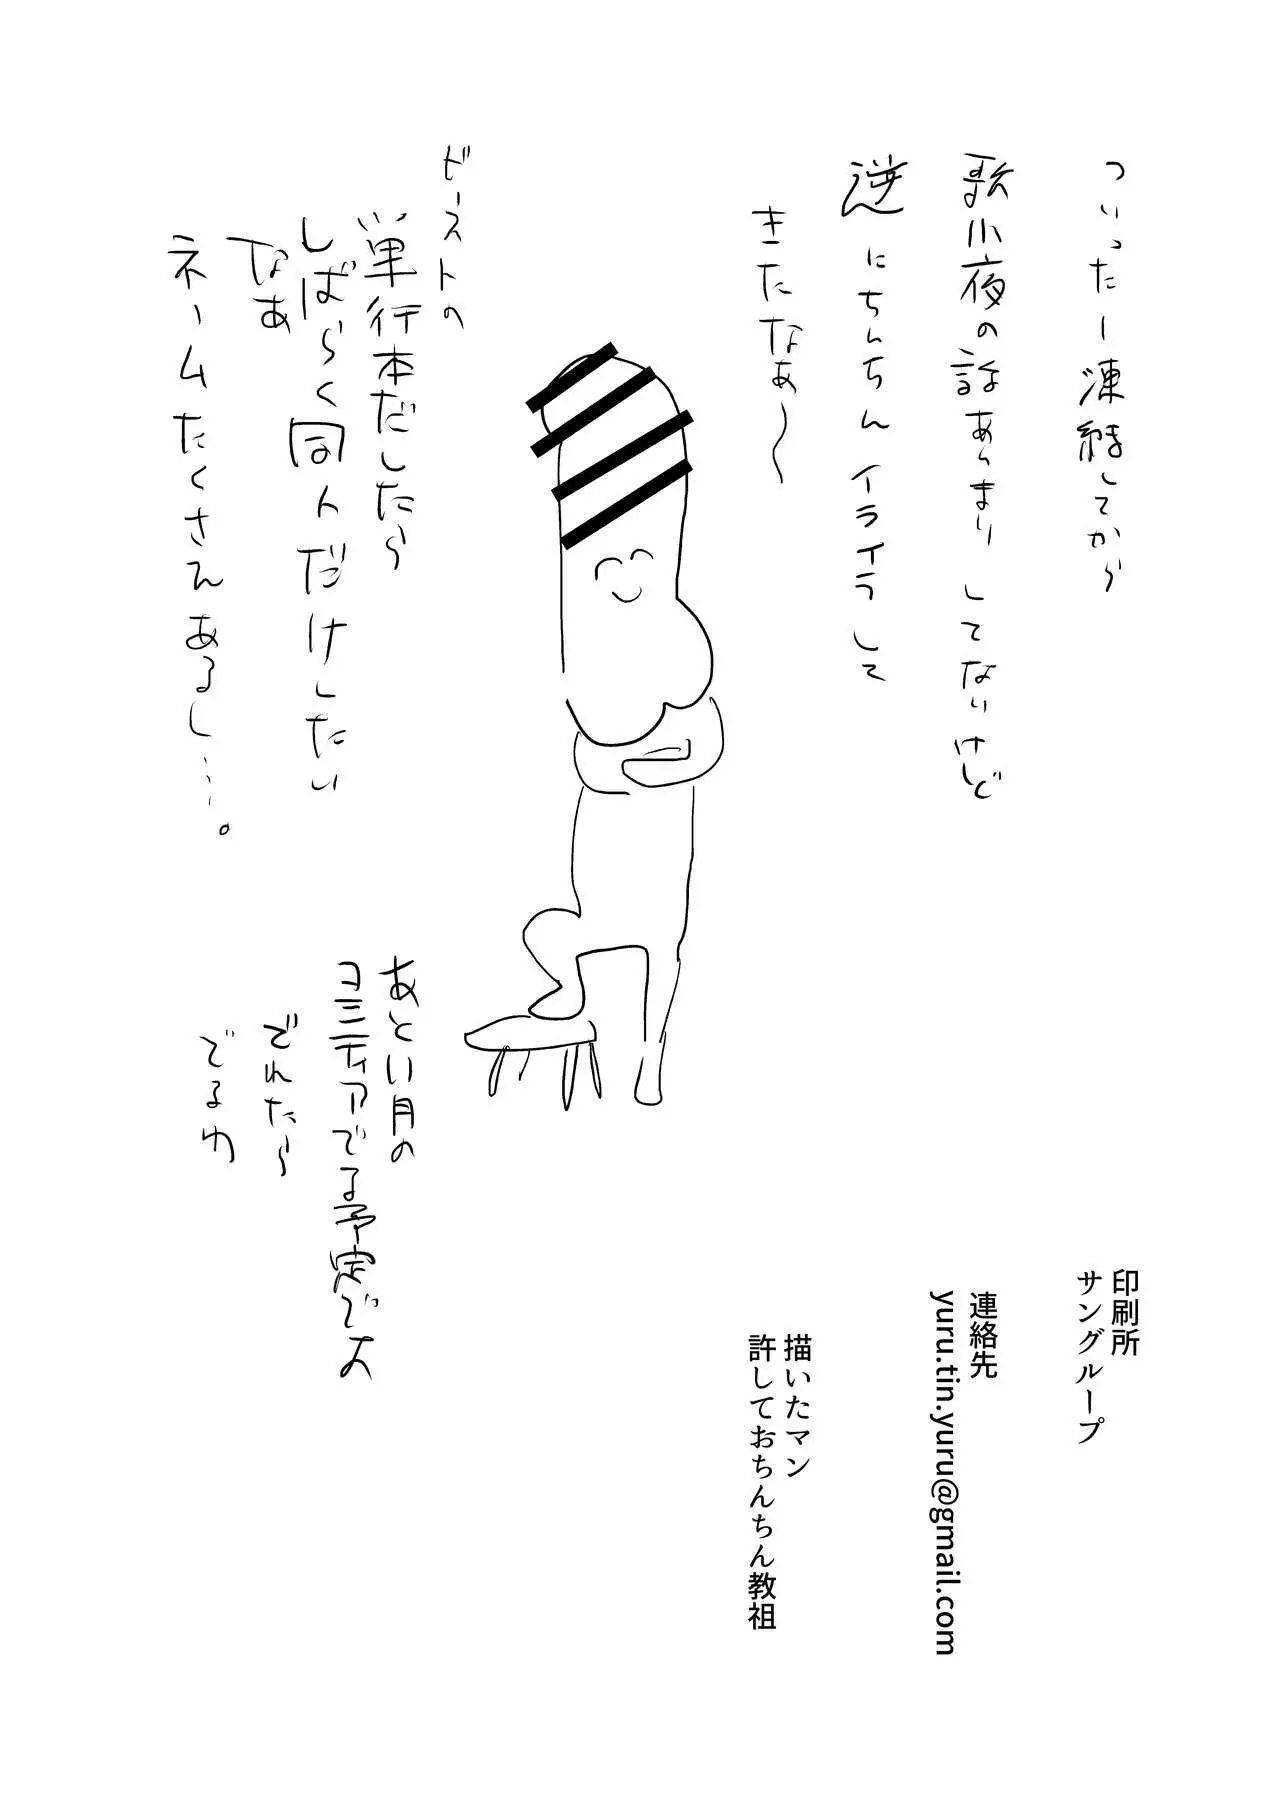 ついったー凍結してから
歌小夜の話あんまりしてないけど
逆にちんちんイライラして
きたなあ〜
ビーストの
単行本だしたら
しばらく同人だけしたい
なあ
ネームたくさんあるし…。
あとい月の
コミティアでる予定でよ
でれたら
でるわ
印刷所
サングループ
連絡先
yuru.tin.yuru@gmail.com
描いたマン
許しておちんちん教祖